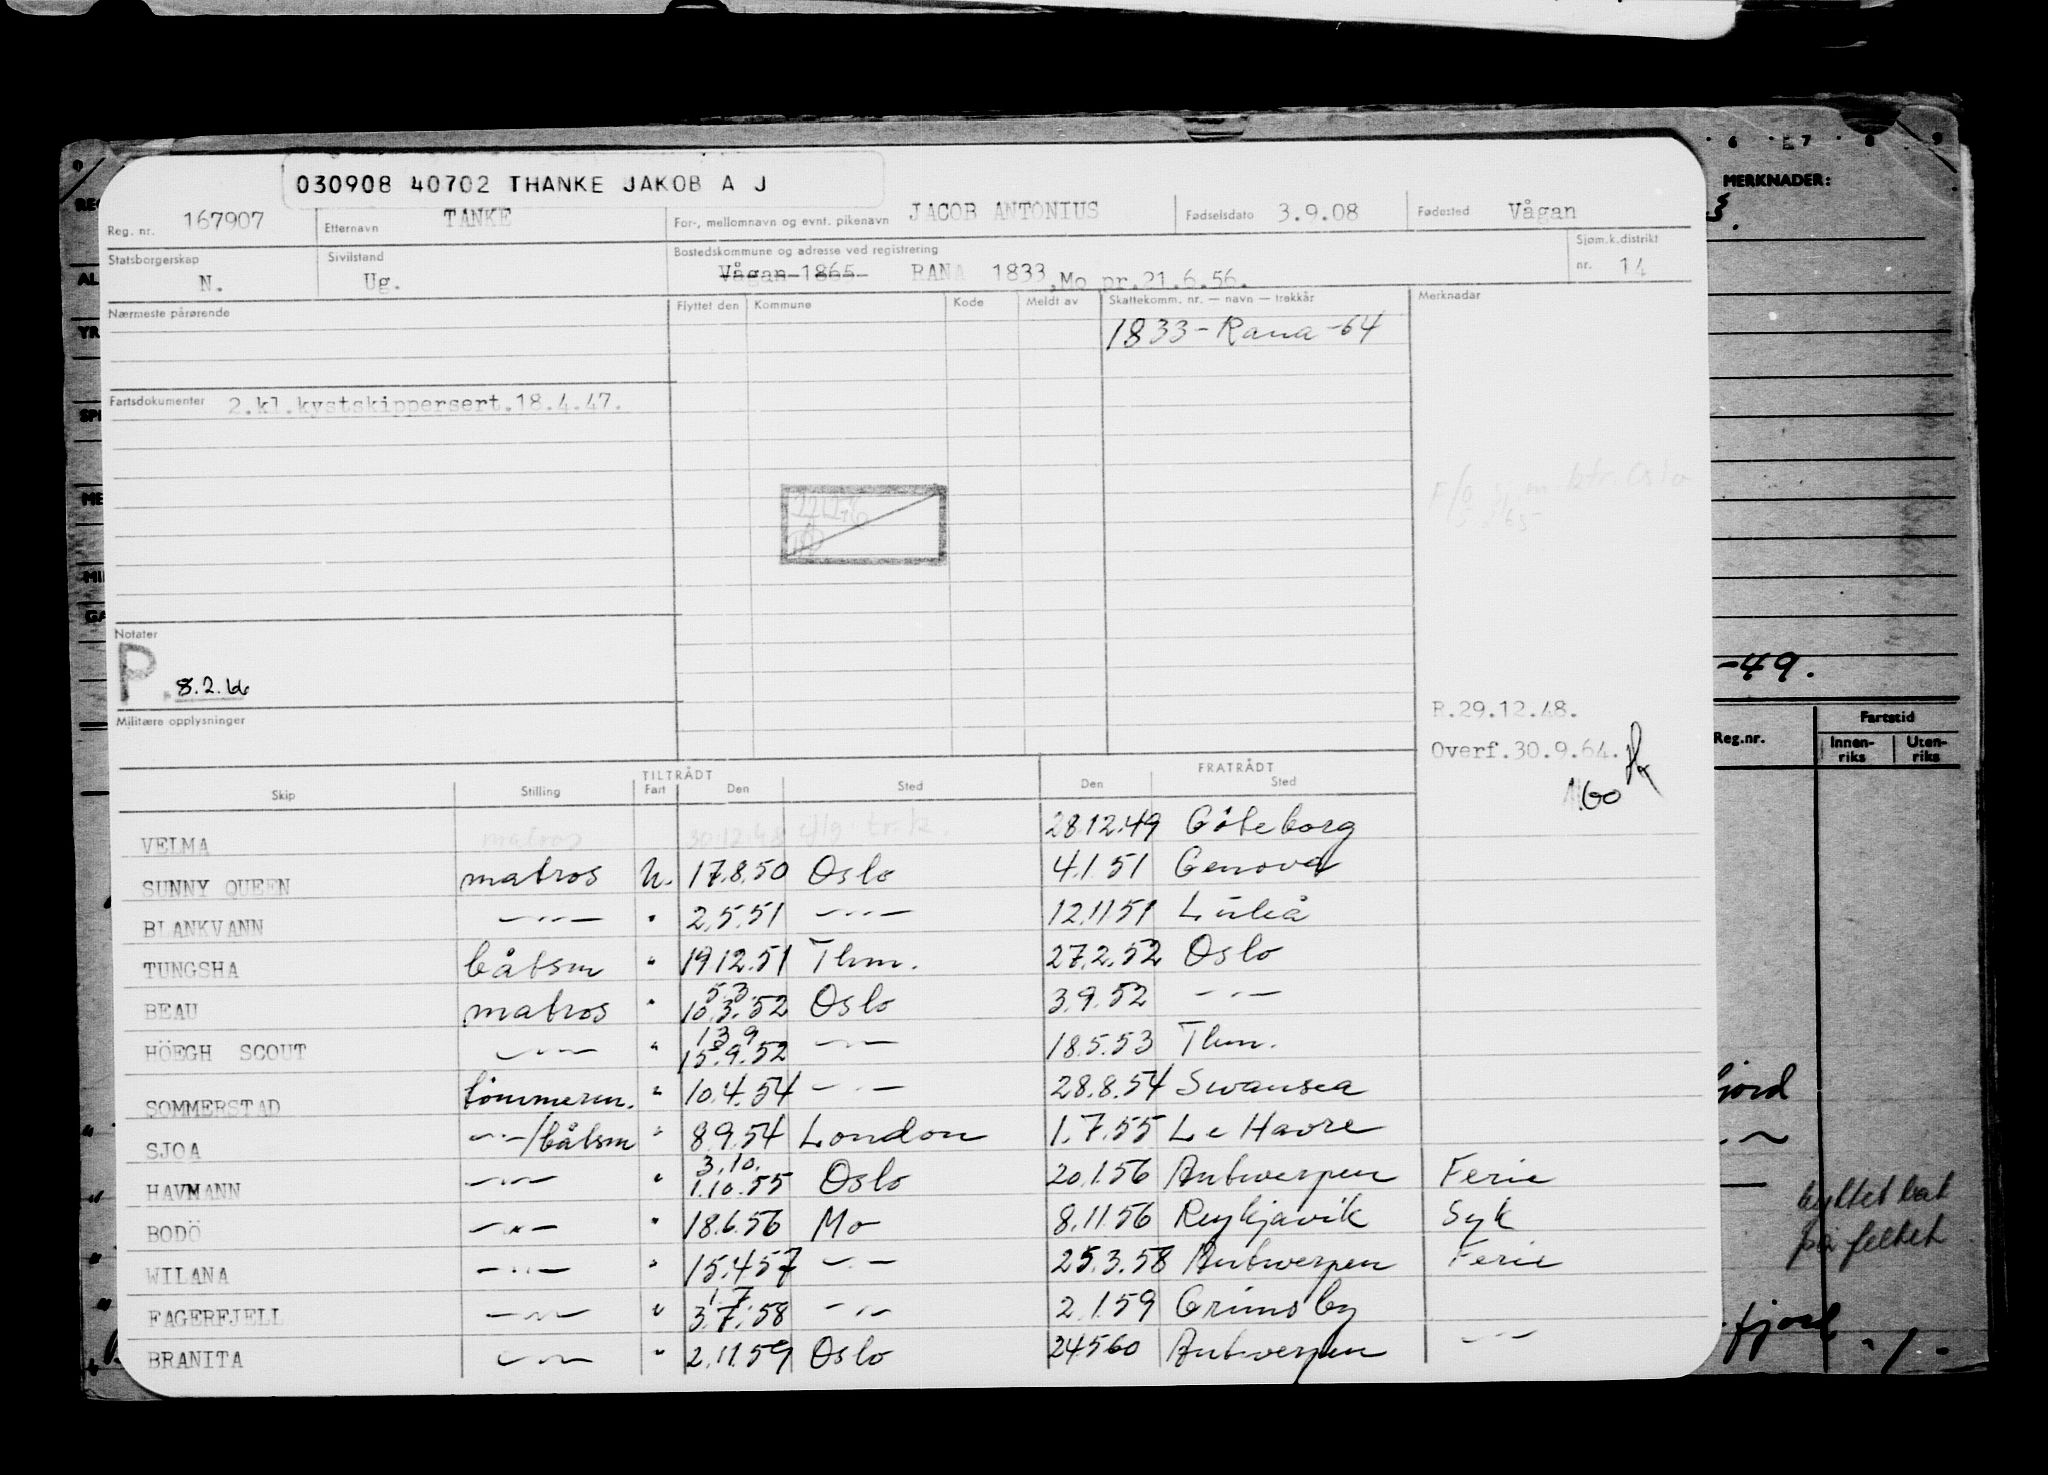 030908 40702 THANKE JAKOB A J
Reg. nr. 167907 Etternavn TANKE For-, mellomnavn og evnt. pikenavn JACOB ANTONIUS Fødselsdato 3.9.08 Fødested Vågan
Statsborgerskap N. Sivilstand Ug. Bostedskommune og adresse ved registrering Vågan 1865 RANA 1833, Mo pr.21.6.56. Sjøm.k.distrikt nr. 14
Nærmeste pårørende Flyttet den Kommune Kode Meldt av Skattekomm. nr. — navn — trekkår Merknadar
1833-Rana-64
Fartsdokumenter 2.kl.kystskippersert.18.4.47.
Notater
P. 8.2.66
Militære opplysninger
R.29.12.48.
Overf.30.9.64.
TILTRÅDT FRATRÅDT
Skip Stilling Fart Den Sted Den Sted
VELMA matros 30.12.48 28.12.49 Göteborg
SUNNY QUEEN matros U. 17.8.50 Oslo 4.1.51 Genova
BLANKVANN —"— " 2.5.51 —"— 12.11 51 Luleå
TUNGSHA båtsm " 19 12.51 Thm. 27.2.52 Oslo
BEAU matros " 5.3. 10.3.52 Oslo 3.9.52 —"—
HÖEGH SCOUT —"— " 13 9 15.9.52 —"— 18.5.53 Thm.
SOMMERSTAD tömmerm. " 10.4.54 —"— 28.8.54 Swansea
SJOA —"—/båtsm " 8 9.54 London 1.7.55 Le Havre
HAVMANN —"— " 3.10. 1.10.55 Oslo 20.1.56 Antwerpen Ferie
BODÖ —"— " 18.6.56 Mo 8.11.56 Reykjavik Syk
WILANA —"— " 15.4 57 —"— 25.3.58 Antwerpen Ferie
FAGERFJELL —"— " 1.7. 3.7.58 —"— 2.1.59 Grimsby
BRANITA —"— " 2.11.59 Oslo 24 5 60 Antwerpen —"—
6 7 8 9
MERKNADER:
-49.
Reg.nr. Fartstid
Innen-riks Uten-riks